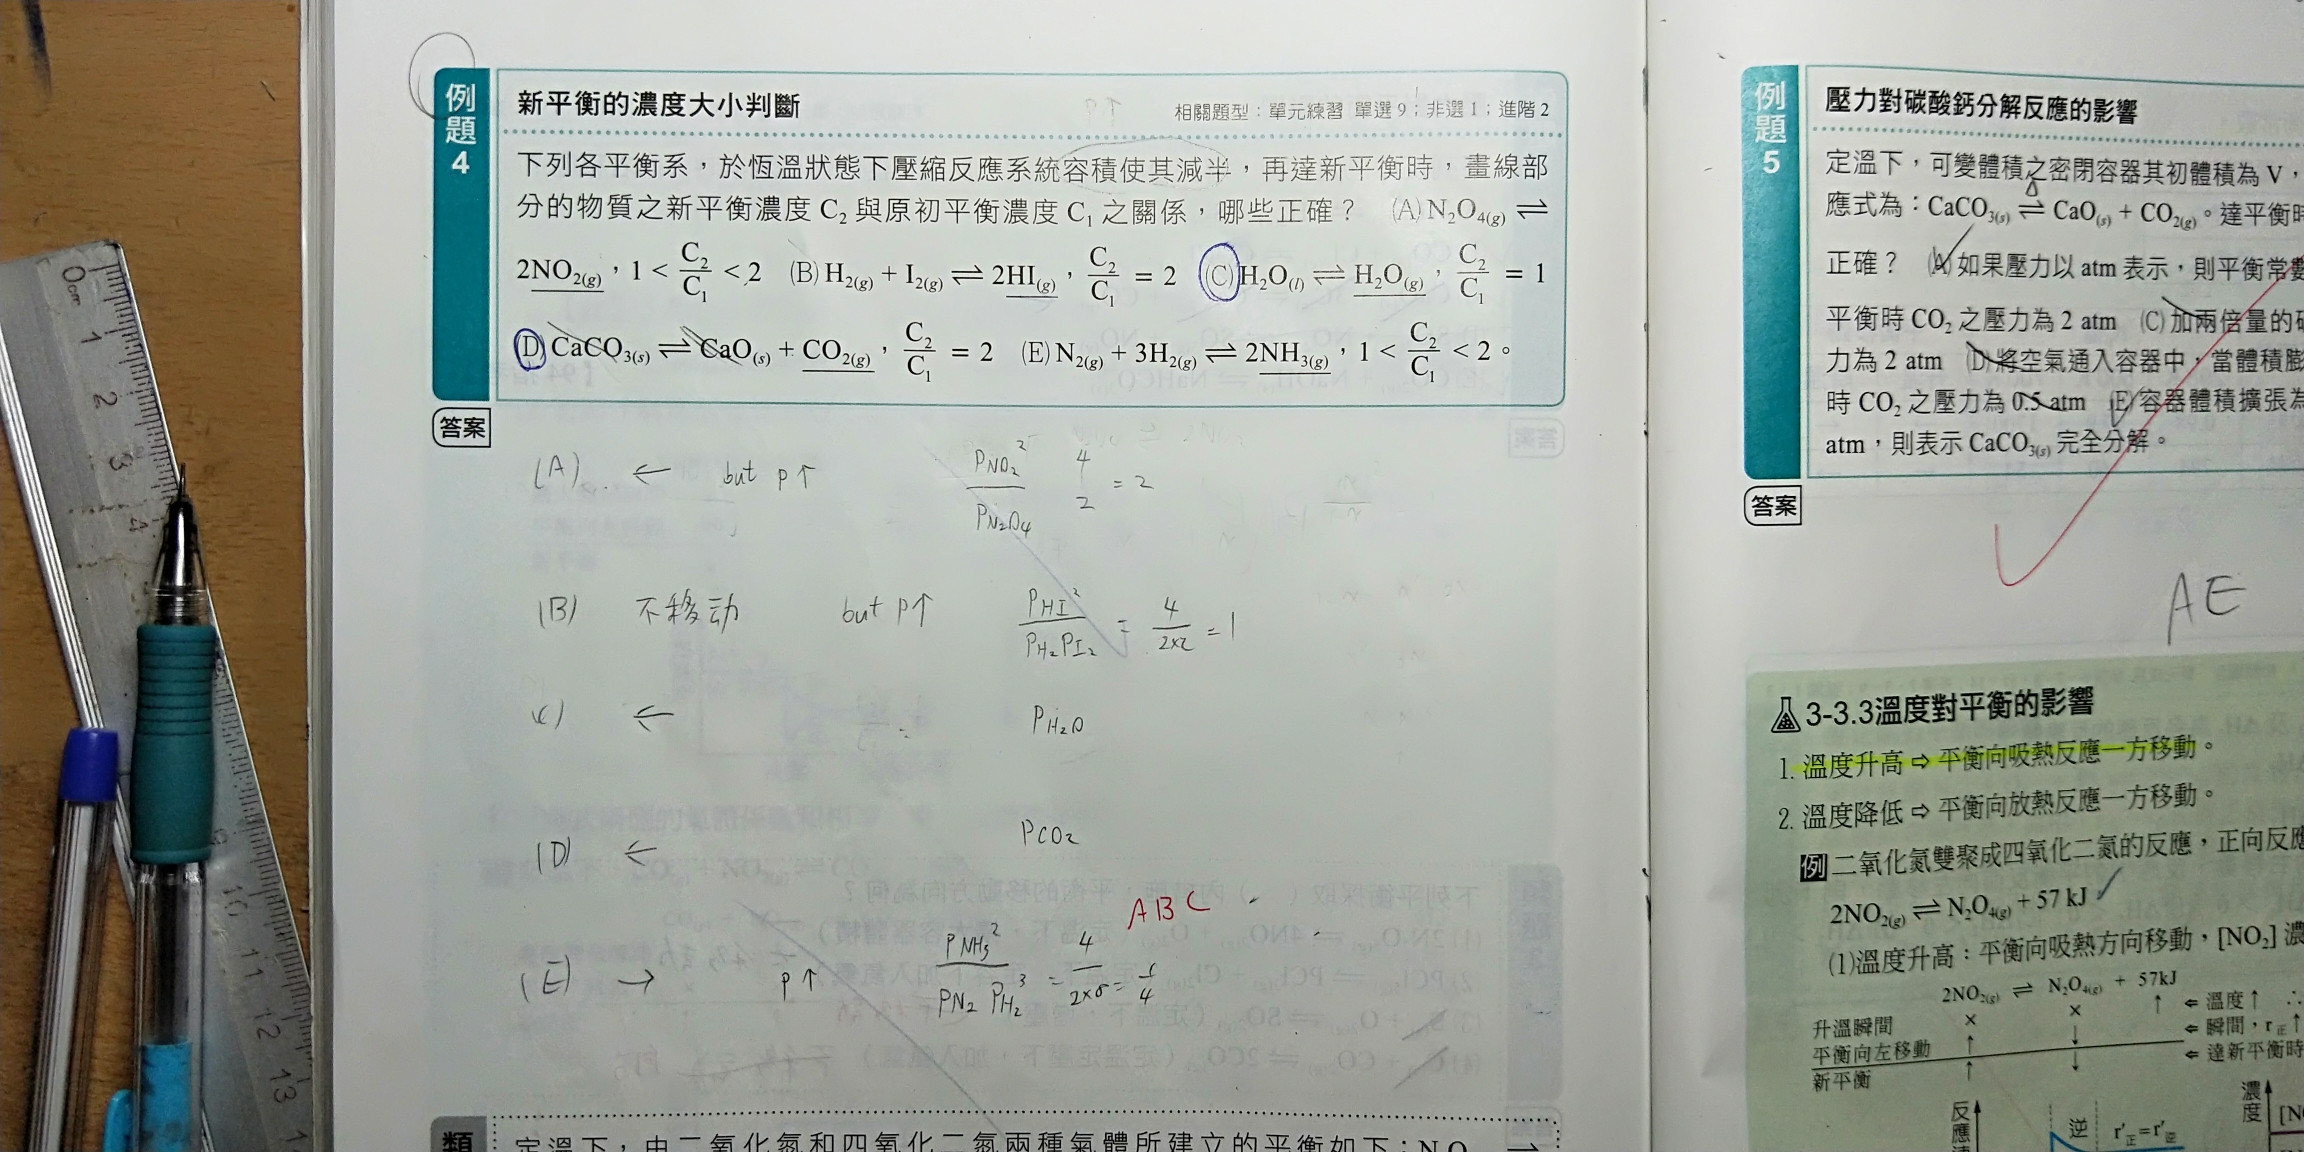 例題4
新平衡的濃度大小判斷
相關題型:單元練習 單選 9;非選 1;進階 2
下列各平衡系,於恆溫狀態下壓縮反應系統容積使其減半,再達新平衡時,畫線部
分的物質之新平衡濃度 C₂ 與原初平衡濃度 C₁ 之關係,哪些正確? (A) N₂O₄(g) ⇌
2NO₂(g),1 < C₂/C₁ < 2 (B) H₂(g) + I₂(g) ⇌ 2HI(g),C₂/C₁ = 2 (C) H₂O(l) ⇌ H₂O(g),C₂/C₁ = 1
(D) CaCO₃(s) ⇌ CaO(s) + CO₂(g),C₂/C₁ = 2 (E) N₂(g) + 3H₂(g) ⇌ 2NH₃(g),1 < C₂/C₁ < 2。
答案
(A) ← but p↑ P_NO₂²/P_N₂O₄ 4/2 = 2
(B) 不移动 but p↑ P_HI²/P_H₂P_I₂ = 4/2×2 = 1
(C) ← P_H₂O
(D) ← P_CO₂
ABC
(E) → p↑ P_NH₃²/P_N₂ P_H₂³ = 4/2×8 = 1/4
類
定溫下,由二氧化氮和四氧化二氮兩種氣體所建立的平衡如下:N₂O
例題5
壓力對碳酸鈣分解反應的影響
定溫下,可變體積之密閉容器其初體積為 V,
應式為:CaCO₃(s) ⇌ CaO(s) + CO₂(g)。達平衡時
正確? (A) 如果壓力以 atm 表示,則平衡常數
平衡時 CO₂ 之壓力為 2 atm (C) 加兩倍量的碳
力為 2 atm (D) 將空氣通入容器中,當體積膨
時 CO₂ 之壓力為 0.5 atm (E) 容器體積擴張為
atm,則表示 CaCO₃(s) 完全分解。
答案
AE
3-3.3溫度對平衡的影響
1. 溫度升高 ⇨ 平衡向吸熱反應一方移動。
2. 溫度降低 ⇨ 平衡向放熱反應一方移動。
例 二氧化氮雙聚成四氧化二氮的反應,正向反應
2NO₂(g) ⇌ N₂O₄(g) + 57 kJ
(1)溫度升高:平衡向吸熱方向移動,[NO₂] 濃
2NO₂(g) ⇌ N₂O₄(g) + 57kJ
↑ ⇐ 溫度↑ ∴
升溫瞬間 × × ⇐ 瞬間,r正↑
平衡向左移動 ↑ ↓ ⇐ 達新平衡時
新平衡 ↑ ↓
反應速
逆
r'正=r'逆
濃度
[N
0cm 1 2 3 4 9 10 11 12 13